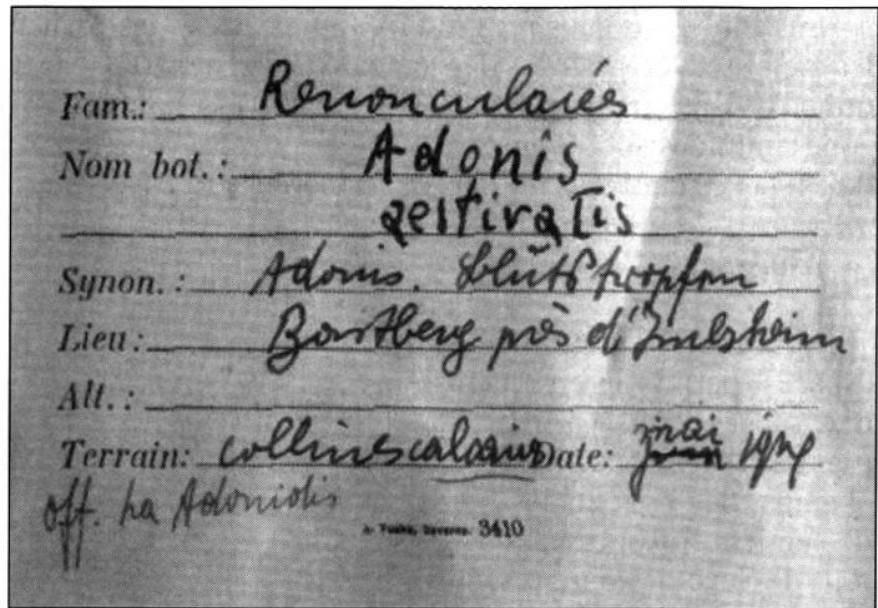 Fam.: Renonculacées
Nom bot.: Adonis
aestivalis
Synon.: Adonis. Blutströpfen
Lieu: Bastberg près d'Imbsheim
Alt.:
Terrain: collines calcaires Date: mai
off. ha Adonidis
3410